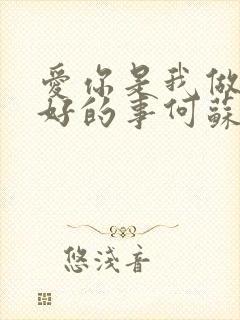 愛你是我做
好的事何蘇
悠淺音